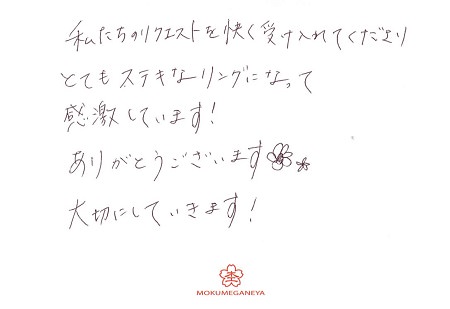 私たちのリクエストを快く受け入れてくださり
とてもステキなリングになって
感激しています!
ありがとうございます
大切にしていきます!
MOKUMEGANEYA